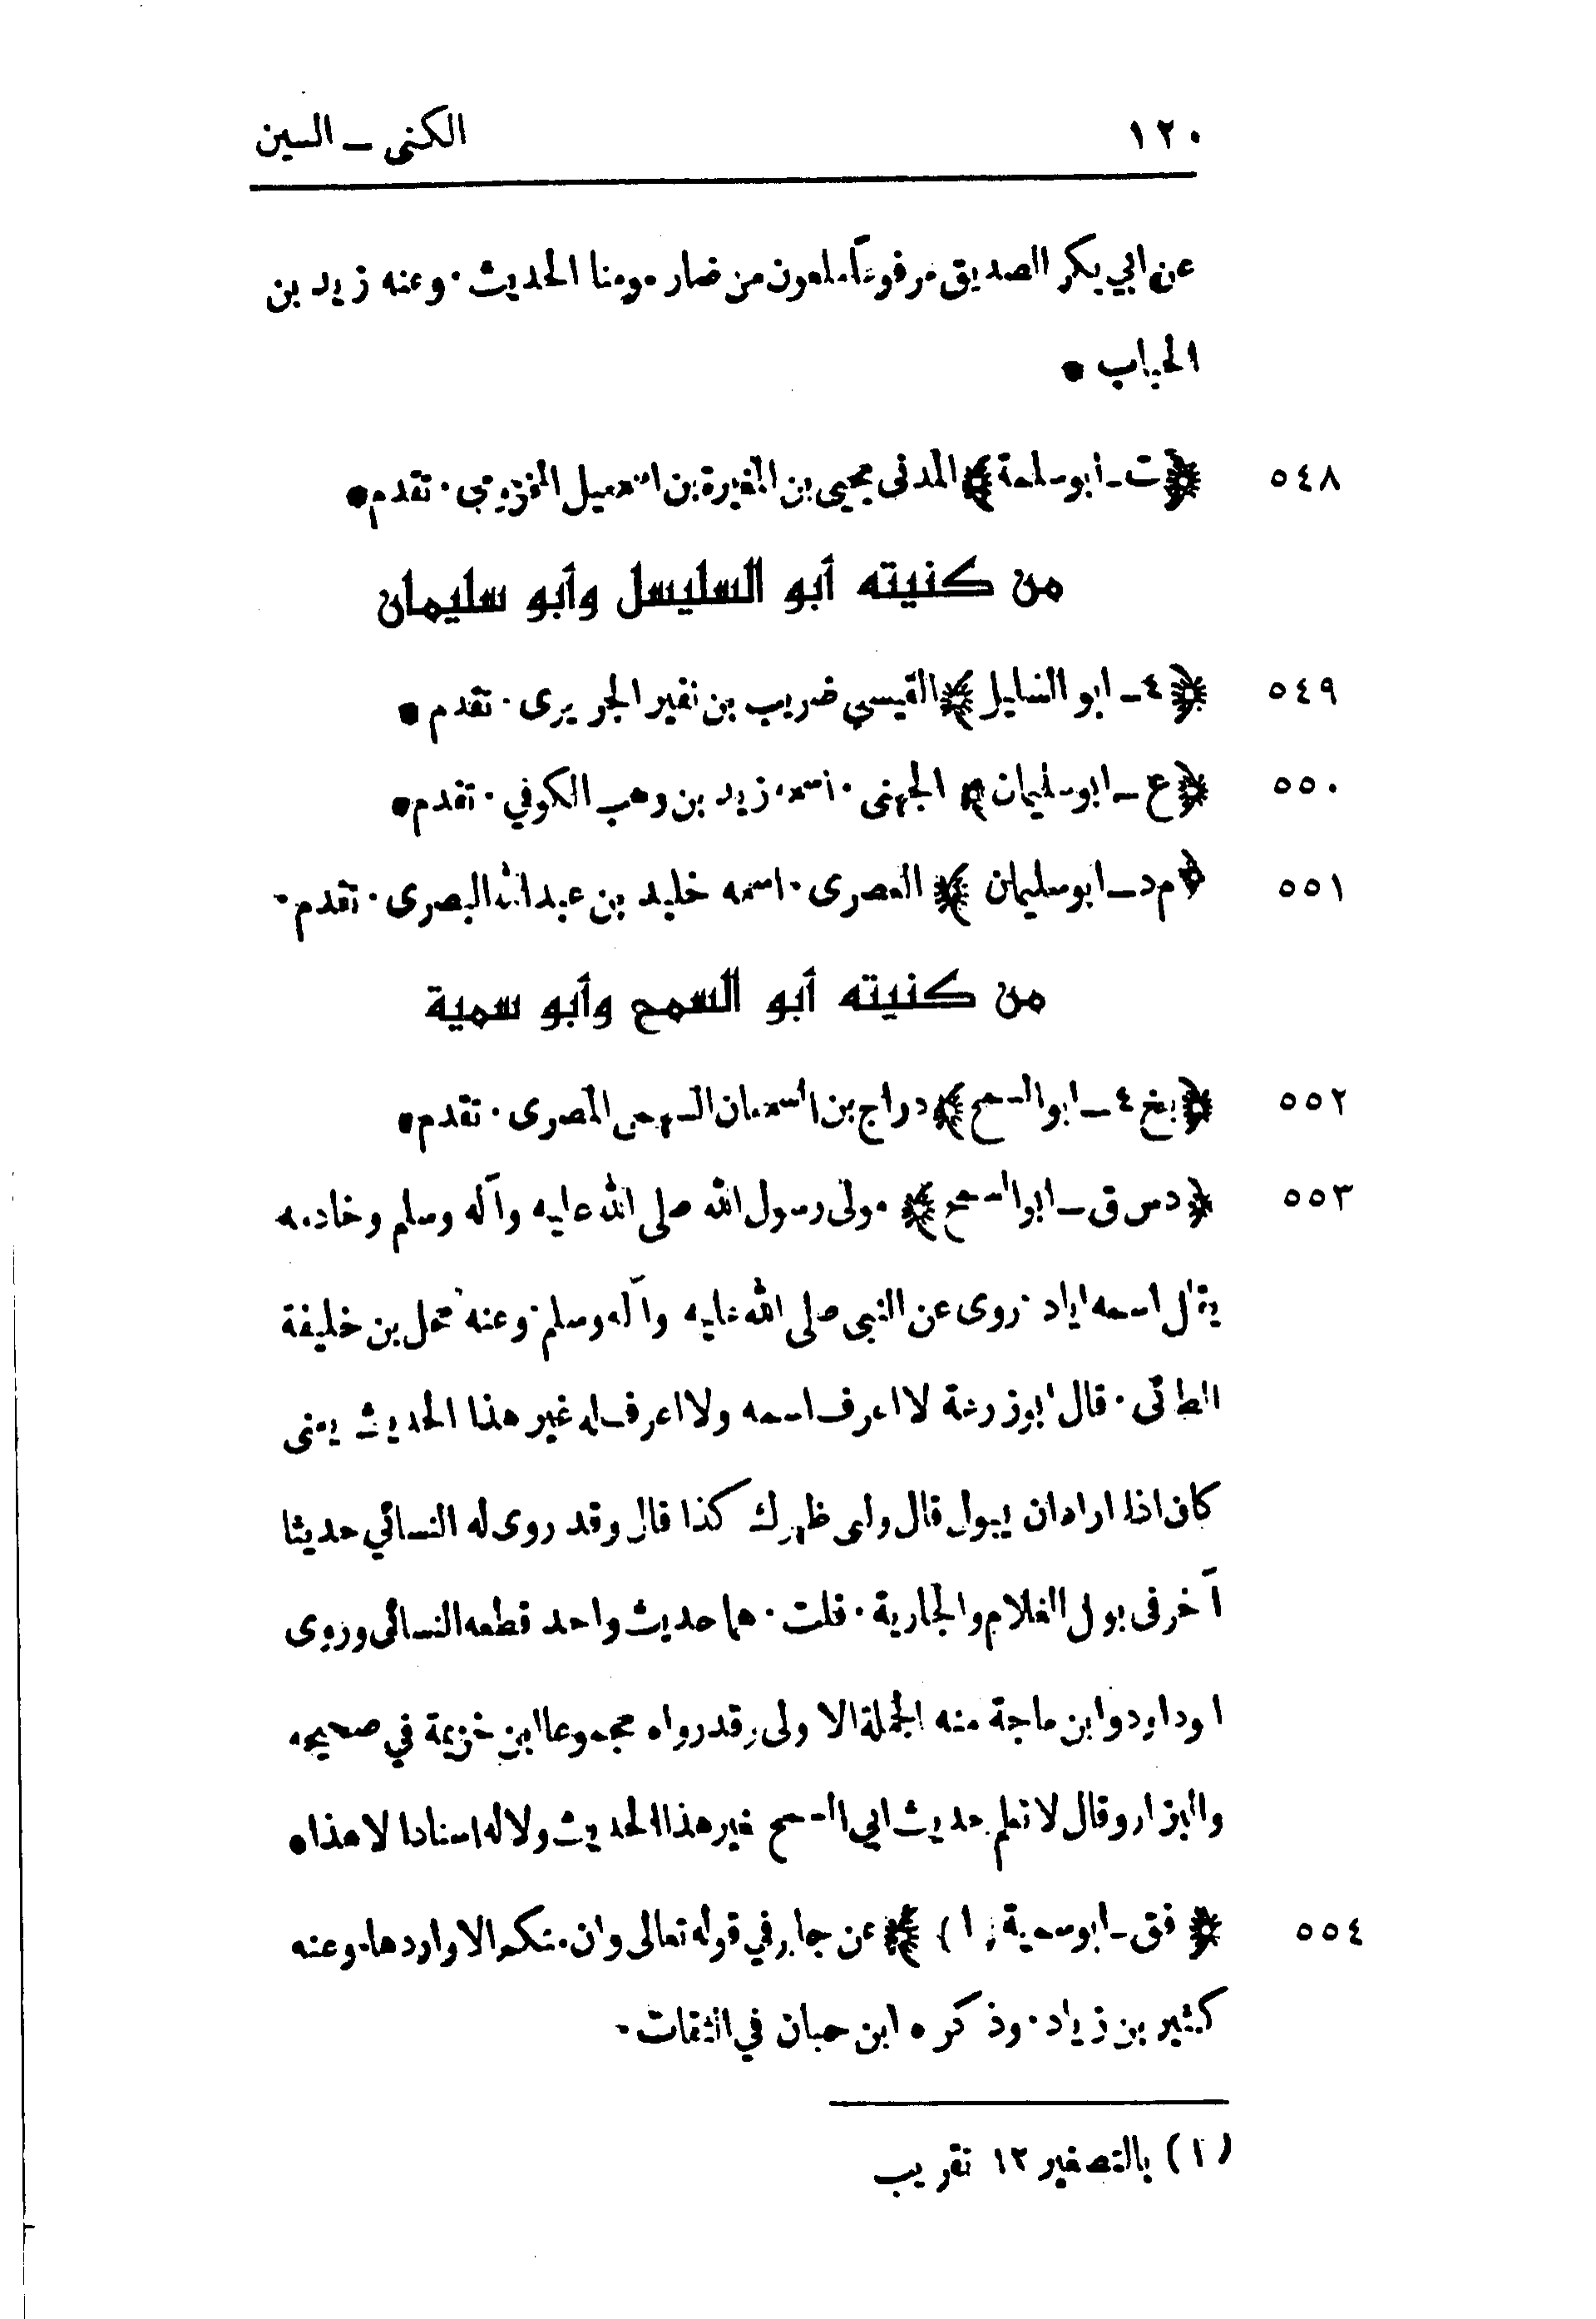 ١٢٠ الكنى ـ السين
عن ابي بكر الصديق مرفوعاً ملعون من ضار مومنا الحديث · وعنه زيد بن
الحباب •
٥٤٨ ﴿ت ـ أبو سلمة﴾ المدنى يحيى بن المغيرة بن اسمعيل المخزومى · تقدم •
من كنيته أبو السليسل وأبو سليمان
٥٤٩ ﴿٤ ـ ابو السليل﴾ القيسي ضريب بن نفير الجريرى · تقدم •
٥٥٠ ﴿ع ـ ابو سليمان﴾ الجهنى · اسمه زيد بن وهب الكوفي · تقدم •
٥٥١ ﴿م د ـ ابو سليمان﴾ العصرى · اسمه خليد بن عبد الله البصرى · تقدم -
من كنيته أبو السمح وأبو سمية
٥٥٢ ﴿بخ ٤ ـ ابو السمح﴾ دراج بن السمعان السهمى المصرى · تقدم •
٥٥٣ ﴿د س ق ـ ابو السمح﴾ مولى رسول الله صلى الله عليه وآله وسلم وخادمه
يقال اسمه اياد · روى عن النبي صلى الله عليه وآله وسلم · وعنه محل بن خليفة
الطائى · قال ابو زرعة لا اعرف اسمه ولا اعرف له غير هذا الحديث يعنى
كان اذا اراد ان يبول قال ولنى ظهرك كذا قال وقد روى له النسائي حديثا
آخر فى بول الغلام والجارية · قلت · هما حديث واحد قطعه النسائى وروى
ابو داود وابن ماجة منه الجملة الاولى وقد رواه مجموعا ابن خزيمة في صحيحه
والبزار وقال لا نعلم حديث ابي السمح غير هذا الحديث ولا له اسنادا لا هذا •
٥٥٤ ﴿فق ـ ابو سمية (١)﴾ عن جابر في قوله تعالى وان منكم الا واردها · وعنه
كثير بن زياد · وذكره ابن حبان في الثقات -
(١) بالتصغير ١٢ تقريب